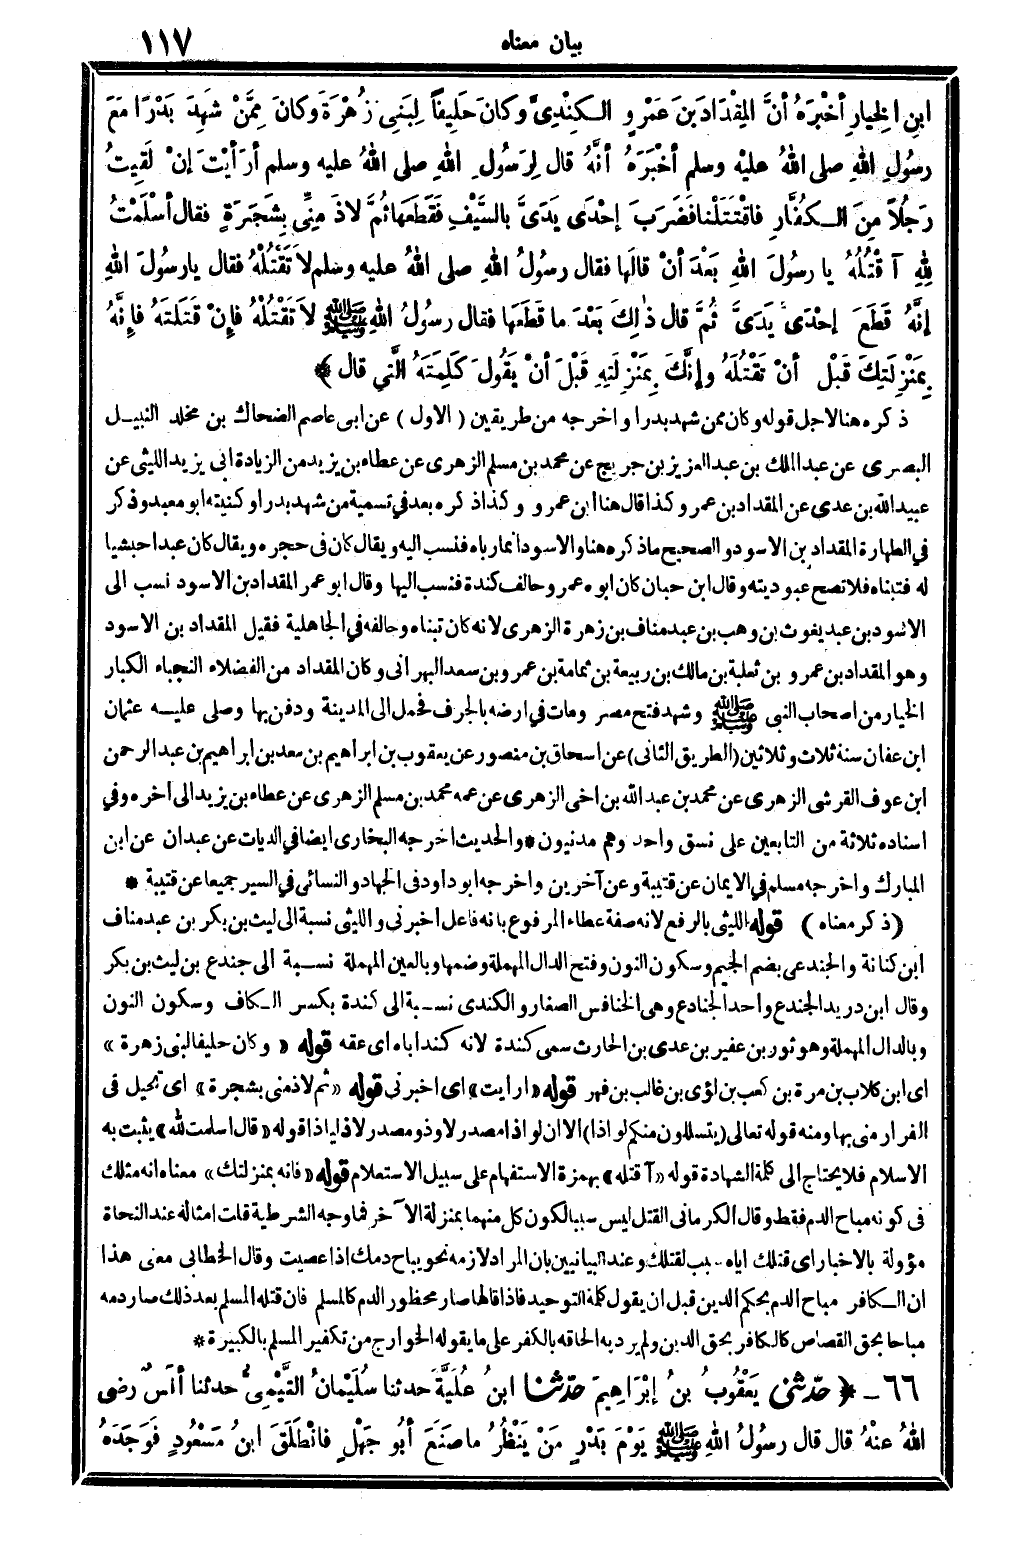 بيان معناه ١١٧
ابنِ الخيارِ أخْبَرَهُ أنَّ المِقْدَادَ بنَ عَمْرٍو الكِنْدِيَّ وكانَ حَلِيفاً لِبَنِي زُهْرَةَ وكانَ مِمَّنْ شَهِدَ بَدْرًا مَعَ
رسُولِ اللهِ صلى اللهُ عليْه وسلم أخْبَرَهُ أنَّهُ قال لِرَسُولِ اللهِ صلى اللهُ عليه وسلم أرَأيْتَ إنْ لَقِيتُ
رَجُلاً مِنَ الكُفَّارِ فاقْتَتَلْنا فَضَرَبَ إحْدَى يَدَيَّ بالسَّيْفِ فَقَطَعَها ثُمَّ لاذَ مِنِّي بِشَجَرَةٍ فقال أسْلَمْتُ
لِلهِ آ قْتُلُهُ يا رسُولَ اللهِ بَعْدَ أنْ قالَها فقال رسُولُ اللهِ صلى اللهُ عليه وسلم لا تَقْتُلْهُ فقال يارسُولَ اللهِ
إنَّهُ قَطَعَ إحْدَى يَدَيَّ ثُمَّ قال ذٰلِكَ بَعْدَ ما قَطَعَها فقال رسُولُ اللهِ ﷺ لا تَقْتُلْهُ فإنْ قَتَلْتَهُ فإنَّهُ
بِمَنْزِلَتِكَ قَبْلَ أنْ تَقْتُلَهُ وإنَّكَ بِمَنْزِلَتِهِ قَبْلَ أنْ يَقُولَ كَلِمَتَهُ الَّتِي قال ﴾
ذكره هنا لاجل قوله وكان ممن شهد بدرا واخرجه من طريقين (الاول) عن ابى عاصم الضحاك بن مخلد النبيل
البصرى عن عبد الملك بن عبد العزيز بن جريج عن محمد بن مسلم الزهرى عن عطاء بن يزيد من الزيادة ابى يزيد الليثى عن
عبيد الله بن عدى عن المقداد بن عمرو كذا قال هنا ابن عمرو وكذا ذكره بعد فى تسمية من شهد بدرا وكنيته ابو معبد وذكر
فى الطهارة المقداد بن الاسود والصحيح ماذكره هنا والاسود انما رباه فنسب اليه ويقال كان فى حجره ويقال كان عبدا حبشيا
له فتبناه فلا تصح عبوديته وقال ابن حبان كان ابوه عمرو حالف كندة فنسب اليها وقال ابو عمر المقداد بن الاسود نسب الى
الاسود بن عبد يغوث بن وهب بن عبد مناف بن زهرة الزهرى لانه كان تبناه وحالفه فى الجاهلية فقيل المقداد بن الاسود
وهو المقداد بن عمرو بن ثعلبة بن مالك بن ربيعة بن ثمامة بن عمرو بن سعد البهرانى وكان المقداد من الفضلاء النجباء الكبار
الخيار من اصحاب النبى ﷺ وشهد فتح مصر ومات فى ارضه بالجرف فحمل الى المدينة ودفن بها وصلى عليه عثمان
ابن عفان سنة ثلاث وثلاثين (الطريق الثانى) عن اسحاق بن منصور عن يعقوب بن ابراهيم بن سعد بن ابراهيم بن عبد الرحمن
ابن عوف القرشى الزهرى عن محمد بن عبد الله بن اخى الزهرى عن عمه محمد بن مسلم الزهرى عن عطاء بن يزيد الى آخره وفى
اسناده ثلاثة من التابعين على نسق واحد وهم مدنيون * والحديث اخرجه البخارى ايضا فى الديات عن عبدان عن ابن
المبارك واخرجه مسلم فى الايمان عن قتيبة وعن آخرين واخرجه ابو داود فى الجهاد والنسائى فى السير جميعا عن قتيبة *
(ذكر معناه) قوله الليثى بالرفع لانه صفة عطاء المرفوع بانه فاعل اخبرنى والليثى نسبة الى ليث بن بكر بن عبد مناف
ابن كنانة والجندعى بضم الجيم وسكون النون وفتح الدال المهملة وضمها وبالعين المهملة نسبة الى جندع بن ليث بن بكر
وقال ابن دريد الجندع واحد الجنادع وهى الخنافس الصغار والكندى نسبة الى كندة بكسر الكاف وسكون النون
وبالدال المهملة وهو ثور بن عفير بن عدى بن الحارث سمى كندة لانه كند اباه اى عقه قوله « وكان حليفا لبنى زهرة »
اى ابن كلاب بن مرة بن كعب بن لؤى بن غالب بن فهر قوله «ارايت» اى اخبرنى قوله «ثم لاذ منى بشجرة» اى تحيل فى
الفرار منى بها ومنه قوله تعالى (يتسللون منكم لواذا) الا ان لواذا مصدر لاوذ ومصدر لاذ لياذا قوله «قال اسلمت لله» يثبت به
الاسلام فلا يحتاج الى كلمة الشهادة قوله «آقتله» بهمزة الاستفهام على سبيل الاستعلام قوله «فانه بمنزلتك» معناه انه مثلك
فى كونه مباح الدم فقط وقال الكرمانى القتل ليس سببا لكون كل منهما بمنزلة الآخر فما وجه الشرطية قلت امثاله عند النحاة
مؤولة بالاخبار اى قتلك اياه سبب لقتلك وعند البيانيين بان المراد لازمه نحو يباح دمك اذا عصيت وقال الخطابى معنى هذا
ان الكافر مباح الدم بحكم الدين قبل ان يقول كلمة التوحيد فاذا قالها صار محظور الدم كالمسلم فان قتله المسلم بعد ذلك صار دمه
مباحا بحق القصاص كالكافر بحق الدين ولم يرد به الحاقه بالكفر على ما يقوله الخوارج من تكفير المسلم بالكبيرة *
٦٦ - ﴿ حدّثنى يَعْقُوبُ بنُ إبْرَاهِيمَ حدّثنا ابنُ عُلَيَّةَ حدثنا سُلَيْمانُ التَّيْمِيُّ حدثنا أنَسٌ رضى
اللهُ عنْهُ قال قال رسُولُ اللهِ ﷺ يَوْمَ بَدْرٍ مَنْ يَنْظُرُ ما صَنَعَ أبُو جَهْلٍ فانْطَلَقَ ابنُ مَسْعُودٍ فَوَجَدَهُ